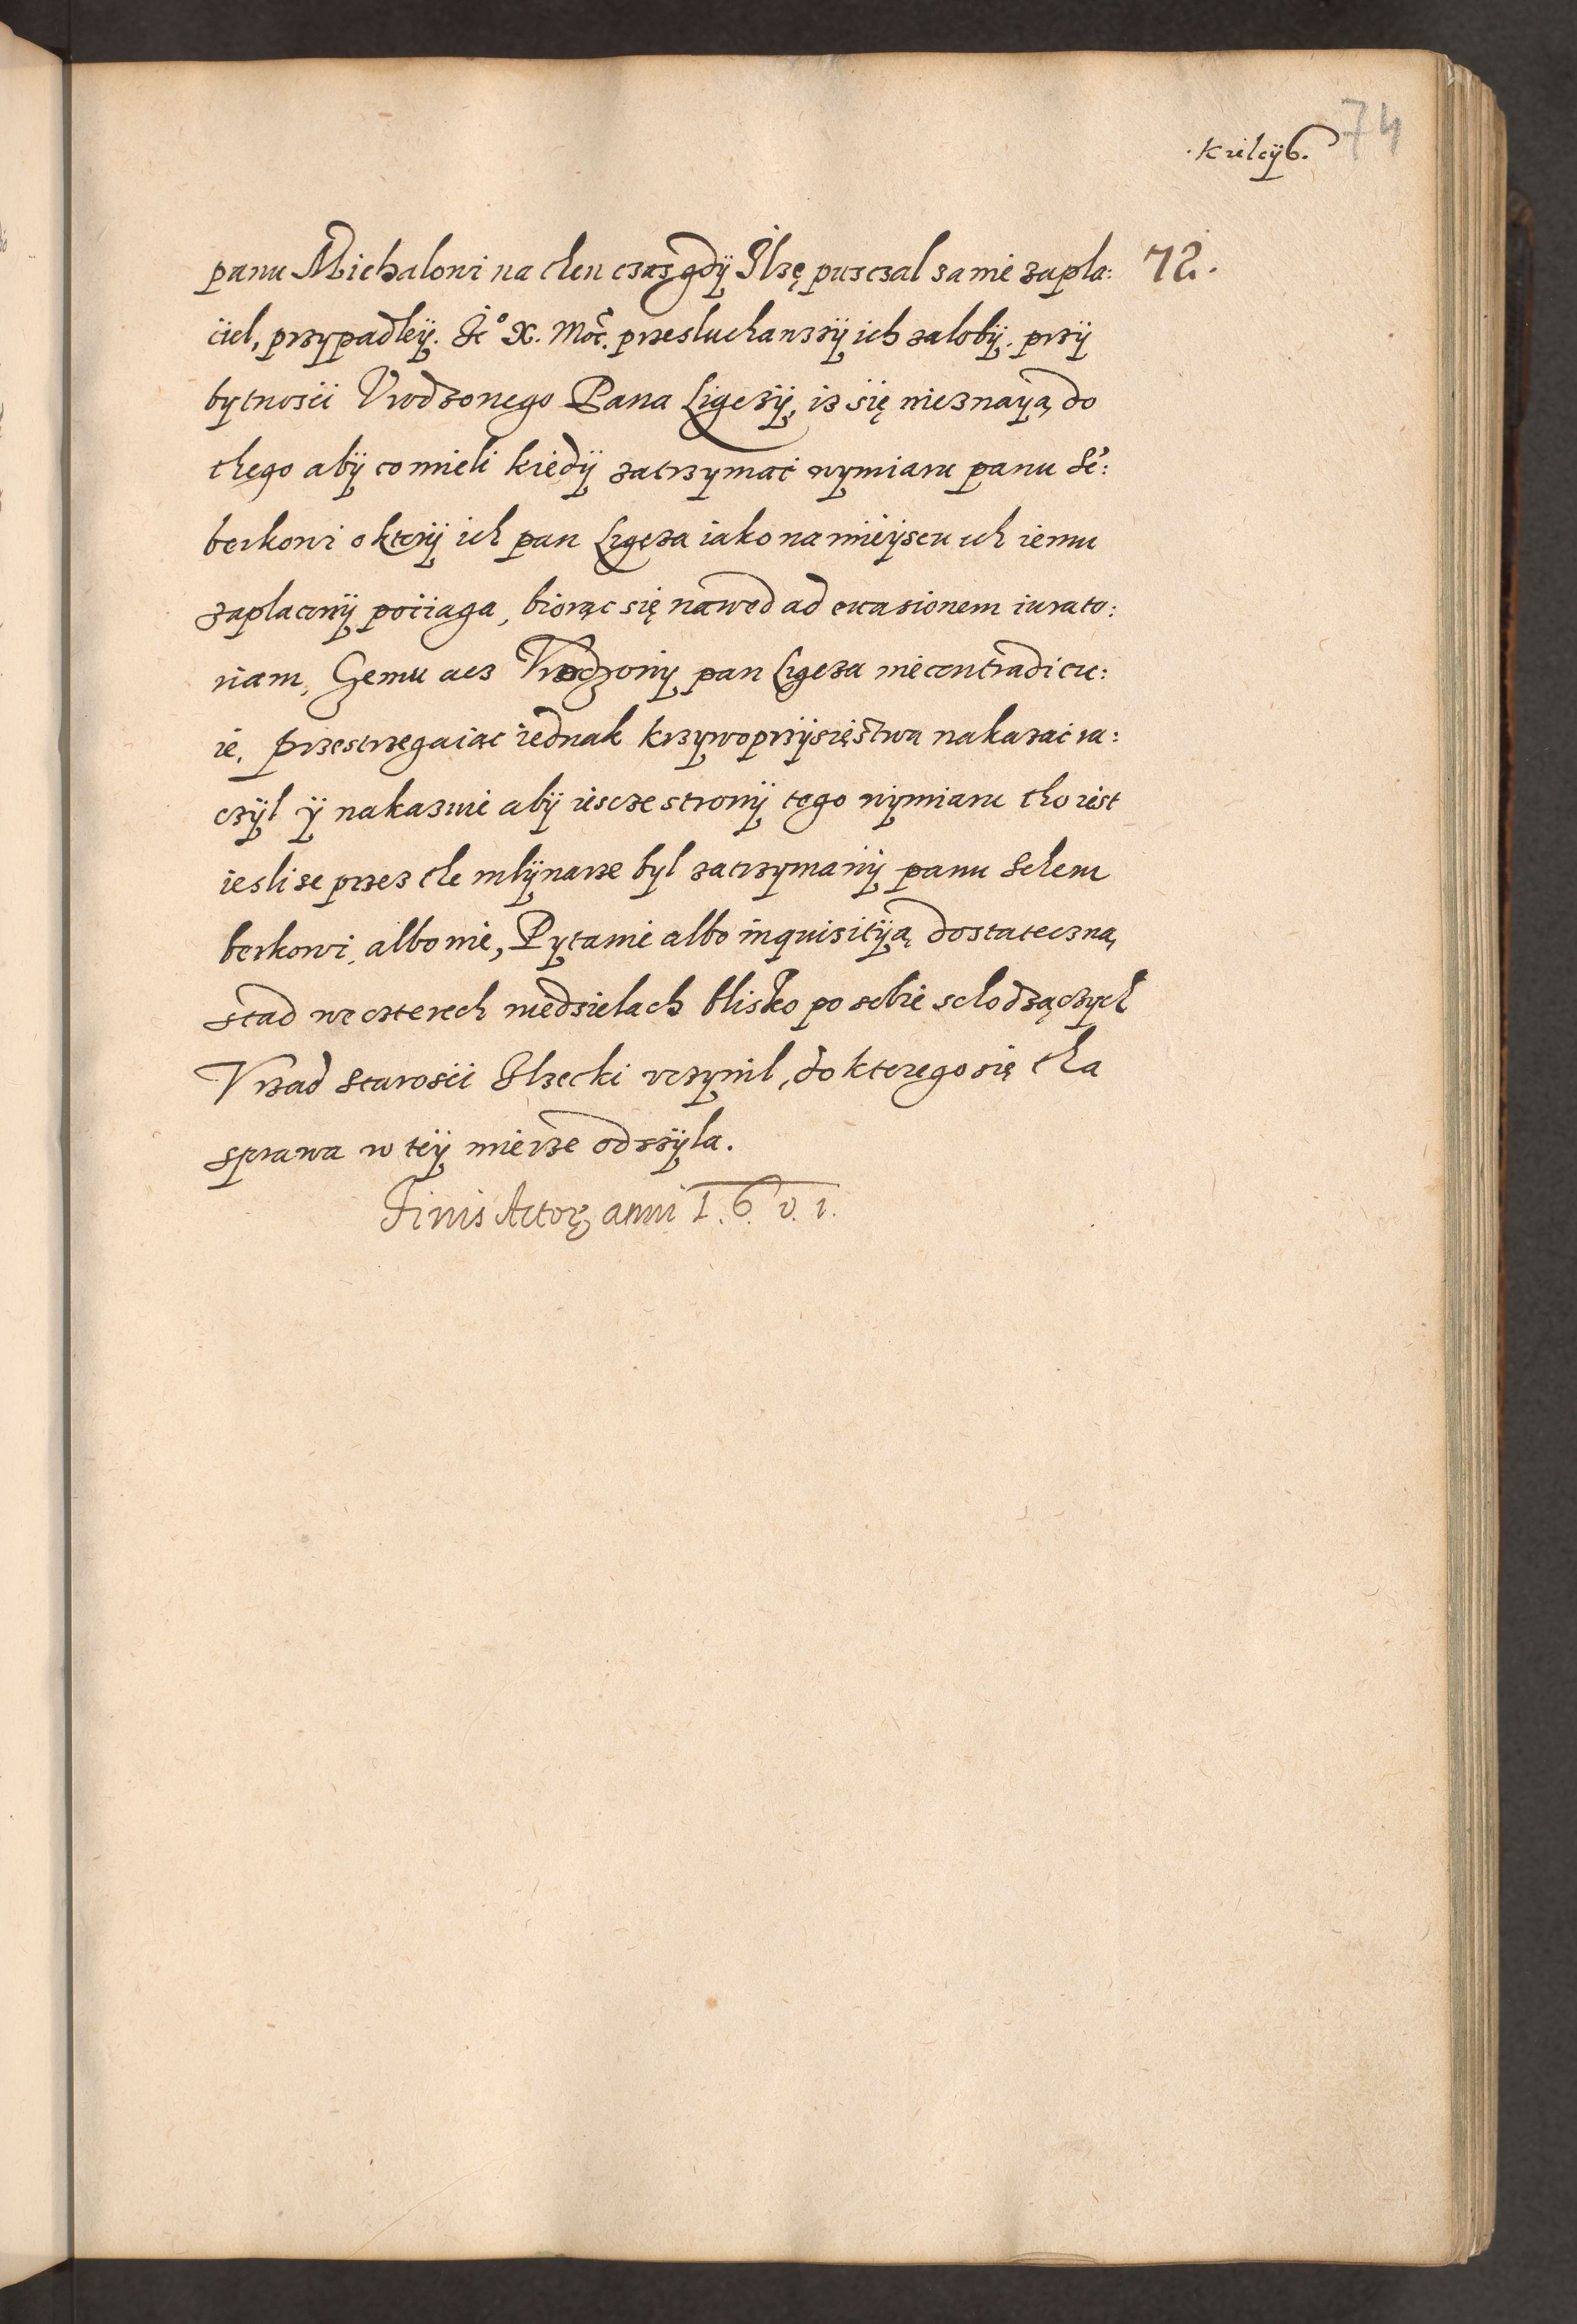 74
72.
panu Michalowi na then czas gdÿ Ilzę pusczal sam ie zapla:
ċiel, przypadleÿ. Je° X. Mość. przesluchawszÿ ich zalobÿ. przÿ
bytnosċi Vrodzonego Pana Ligezÿ, iz się nieznaya do
thego abÿ co mieli kiedÿ zatrzymać wymiaru panu Sė:
berkowi o kterÿ ich pan Ligęza iako na mieÿscu ich iemu
zaplaconÿ poċiaga, biorąc się nawed ad euasionem iurato:
riam, Czemu acz Vrodzony pan Ligeza nie contradicu:
ie. przestrzegaiąc iednak krzywoprzÿsięstwa nakazać ra:
czÿl ÿ nakazuie abÿ iescze stronÿ tego wymiaru tho iest
iesli se przez the mlÿnarze byl zatrzymanÿ panu Schem
berkowi, albo nie, Pytanie albo inquisitÿą dostateczną,
stad we czterech niedzielach blisko po sobie schodząċzych
Vrzad starosċi Ilzecki vczynil, do kterego się tha
sprawa w teÿ mierze odszÿla.
Finis Actorꝫ anni I. 6. 0. 1.